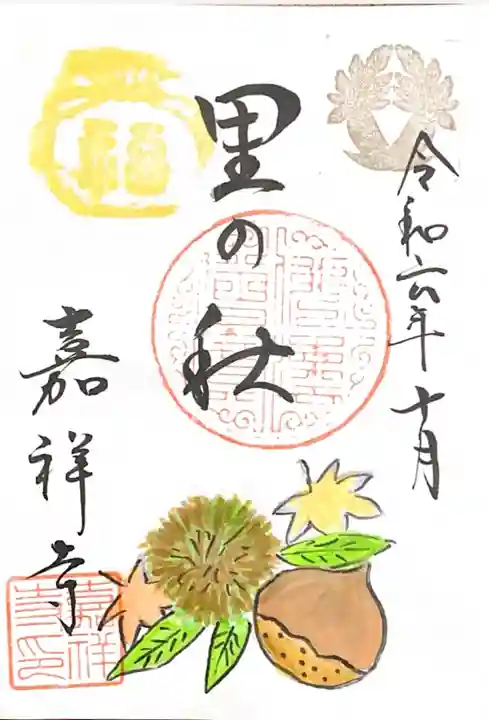 令和六年十月
里の秋
嘉祥寺
福
嘉祥
寺印